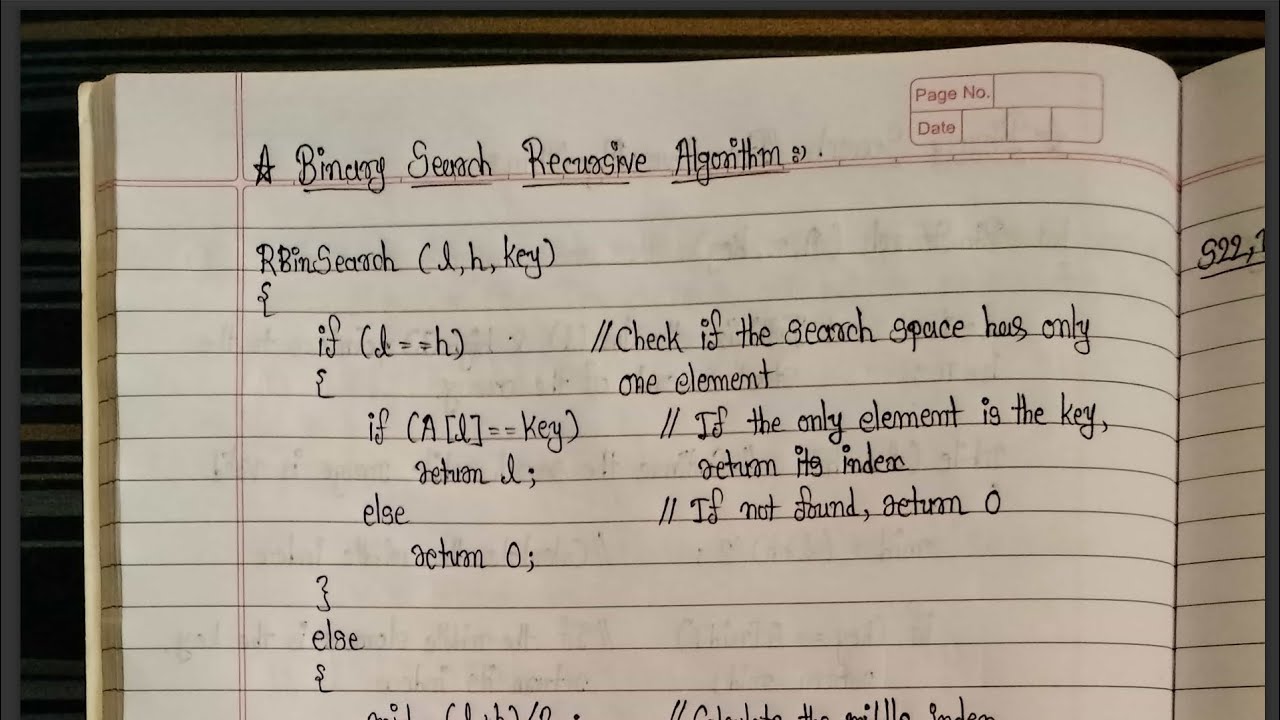 Page No.
Date
☆ Binary Search Recursive Algorithm :-
RBinSearch (l, h, key)
{
if (l == h) // Check if the search space has only
{ one element
if (A[l] == key) // If the only element is the key,
return l; return its index
else // If not found, return 0
return 0;
}
else
{
mid (l+h)/2; // Calculate the middle index
S22,